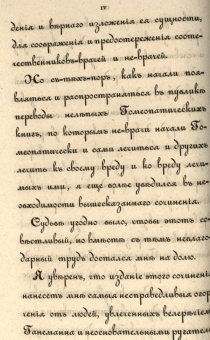 IV
денія и вѣрнаго изложенія ея сущности,
для соображенія и предостереженія сооте-
чественниковъ-врачей и не-врачей.
Но съ-тѣхъ-поръ, какъ начали поя-
вляться и распространяться въ публикѣ
переводы нелѣпыхъ Гомеопатическихъ
книгъ, по которымъ не-врачи начали Го-
меопатически и сами лечиться и другихъ
лечить къ своему вреду и ко вреду лечи-
мыхъ ими, я еще болѣе убѣдился въ не-
обходимости вышесказаннаго сочиненія.
Судьбѣ угодно было, чтобы этотъ со-
вѣстливый, но вмѣстѣ съ тѣмъ неблаго-
дарный трудъ достался мнѣ на долю.
Я увѣренъ, что изданіе этого сочиненія
нанесетъ мнѣ самыя несправедливыя огор-
ченія отъ людей, увлеченныхъ велерѣчіемъ
Ганеманна и неосновательными ругатель